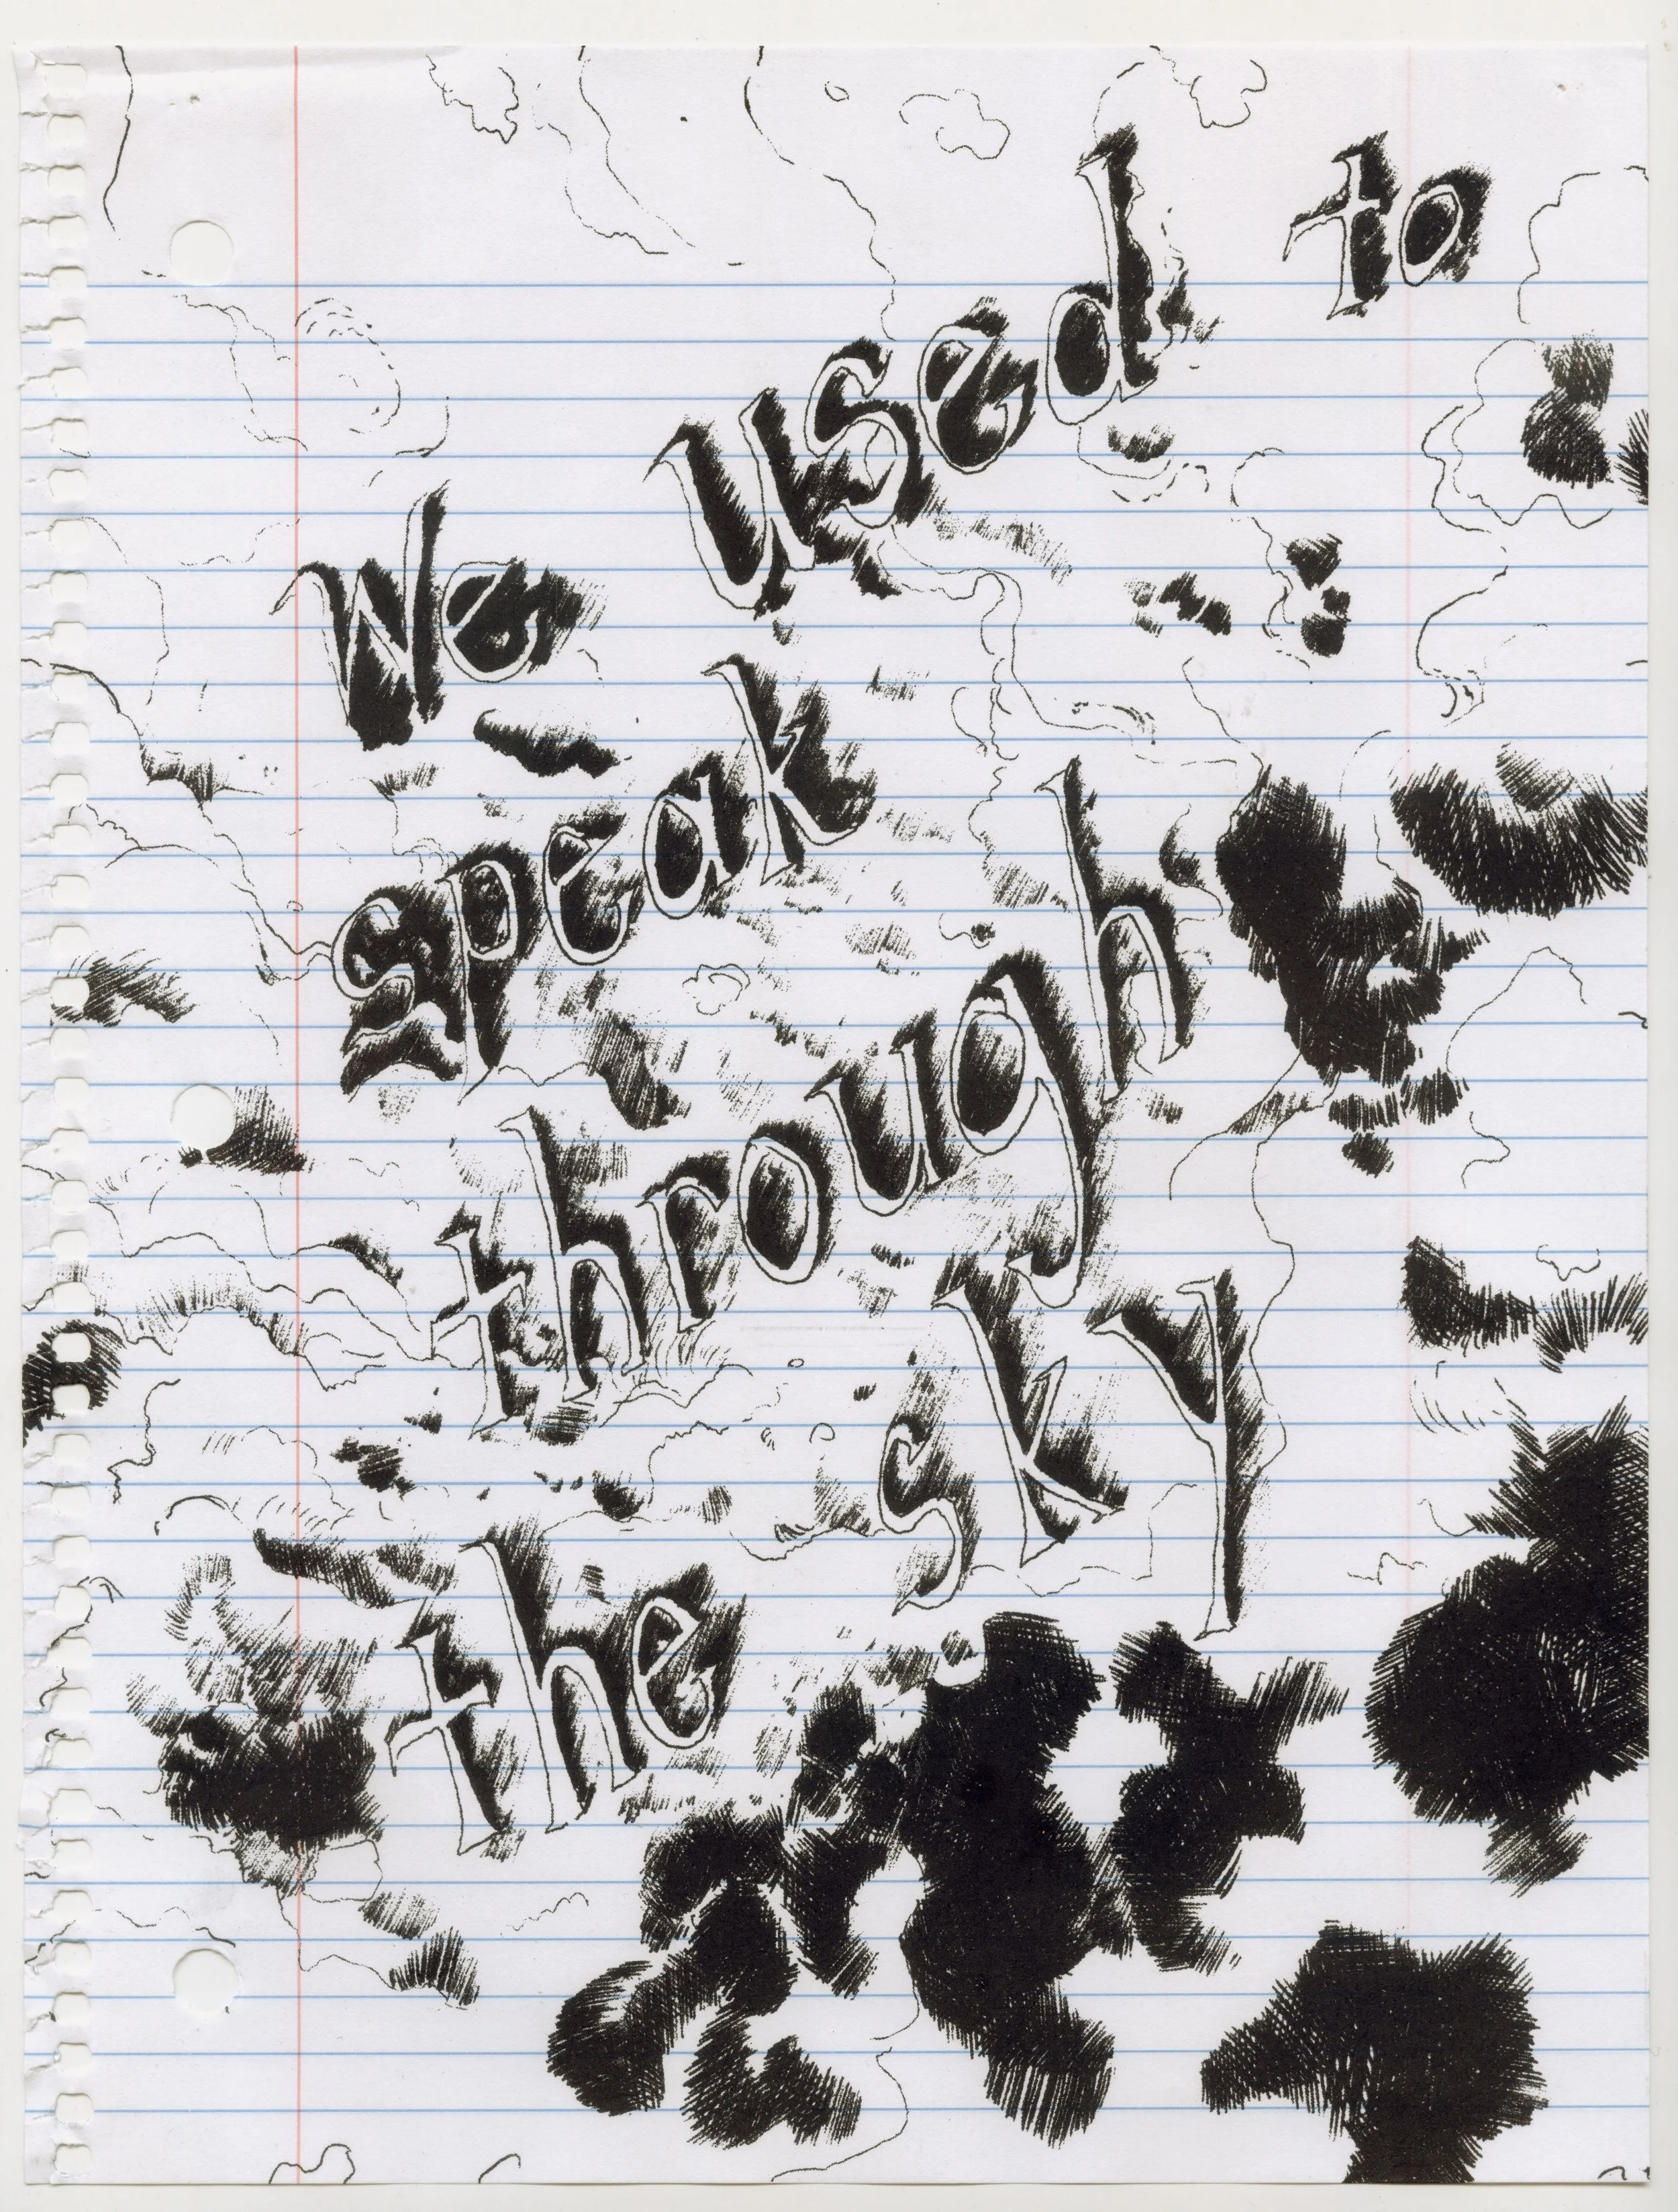 We used to
speak
through
the sky